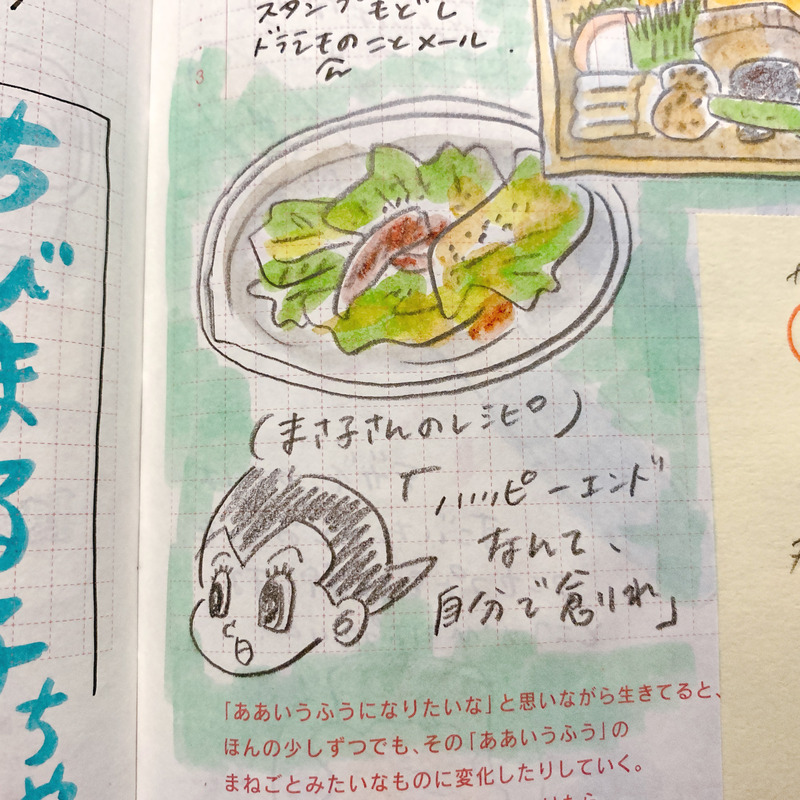 スタンプもどし
ドラえものことメール.
ん
3
(まさ子さんのレシピ)
「ハッピーエンド
なんて、
自分で創りれ」
「ああいうふうになりたいな」と思いながら生きてると、
ほんの少しずつでも、その「ああいうふう」の
まねごとみたいなものに変化したりしていく。
ちびまる子ちゃ